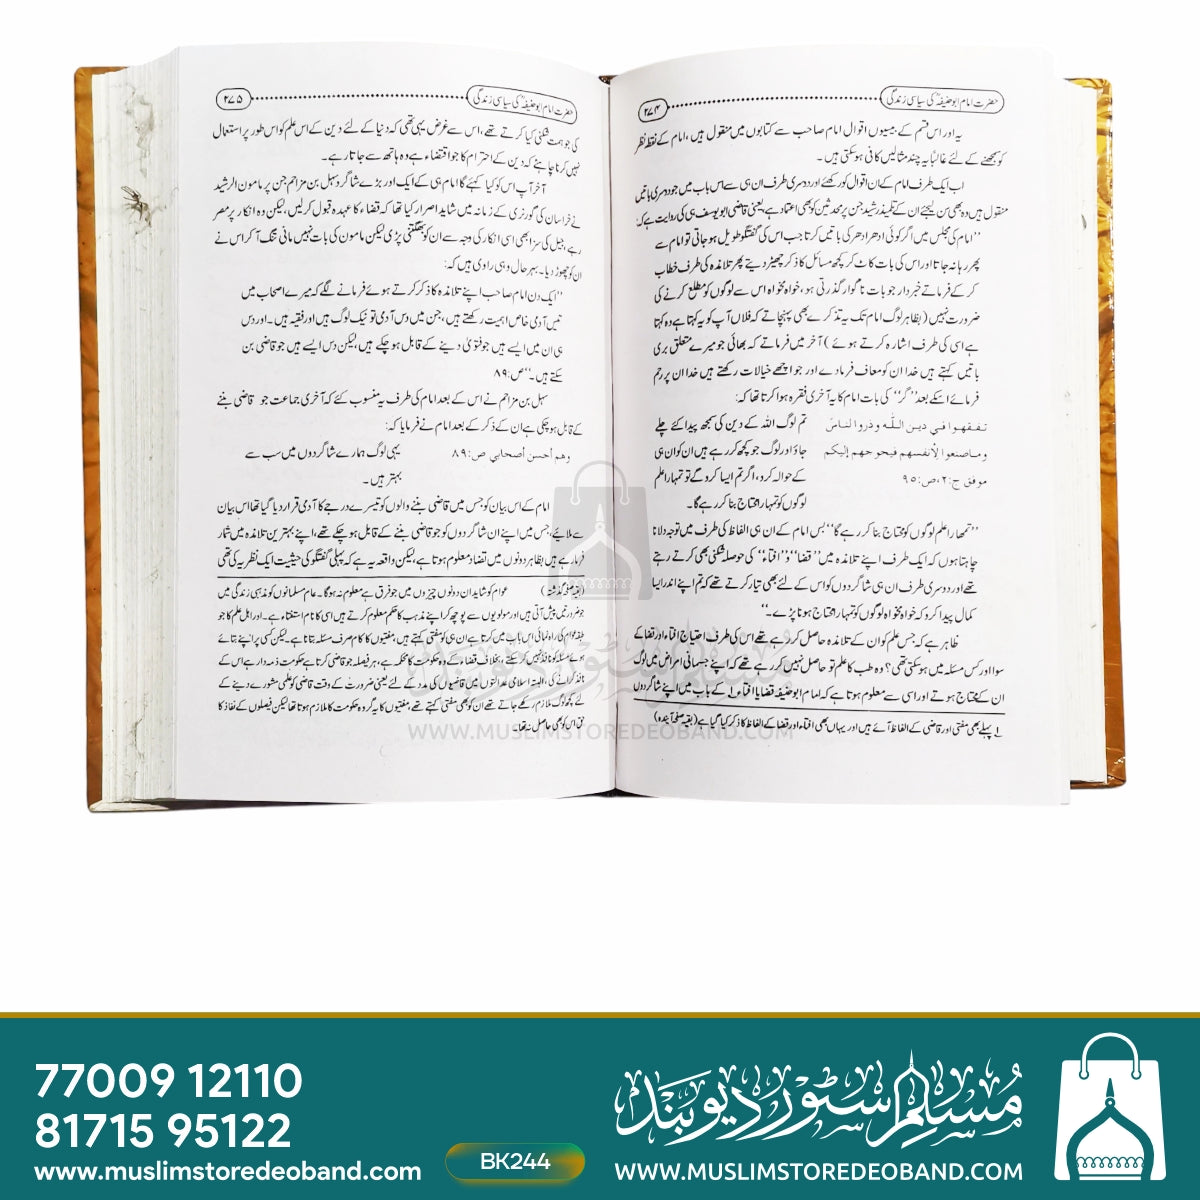 حضرت امام ابوحنیفہؒ کی سیاسی زندگی
۲۷۴
یہ اور اس قسم کے بیسیوں اقوال امام صاحب سے کتابوں میں منقول ہیں، امام کے نقطۂ نظر
کو سمجھنے کے لئے غالباً یہ چند مثالیں کافی ہو سکتی ہیں۔
اب ایک طرف امام کے ان اقوال کو رکھئے اور دوسری طرف ان ہی سے اس باب میں جو دوسری باتیں
منقول ہیں وہ بھی سن لیجئے ان کے تلمیذ رشید جن پر محدثین کو بھی اعتماد ہے یعنی قاضی ابو یوسف ہی کی روایت ہے کہ:
"امام کی مجلس میں اگر کوئی ادھر ادھر کی باتیں کرتا جب اس کی گفتگو طویل ہو جاتی تو امام سے
پھر رہا نہ جاتا اور اس کی بات کاٹ کر کچھ مسائل کا ذکر چھیڑ دیتے پھر تلامذہ کی طرف خطاب
کر کے فرماتے خبردار جو بات ناگوار گذرتی ہو، خواہ مخواہ اس سے لوگوں کو مطلع کرنے کی
ضرورت نہیں (بظاہر لوگ امام تک یہ تذکرے بھی پہنچاتے کہ فلاں آپ کو یہ کہتا ہے وہ کہتا
ہے اسی کی طرف اشارہ کرتے ہوئے) آخر میں فرماتے کہ بھائی جو میرے متعلق بری
باتیں کہتے ہیں خدا ان کو معاف فرمادے اور جو اچھے خیالات رکھتے ہیں خدا ان پر رحم
فرمائے اسکے بعد "گُر" کی بات امام کا یہ آخری فقرہ ہوا کرتا تھا کہ:
تفقهوا في دين اللّٰه وذروا الناس
وما صنعوا لأنفسهم فيحوجهم إليكم
موفق ج:۲،ص:۹۵
تم لوگ اللہ کے دین کی سمجھ پیدا کئے چلے
جاؤ اور لوگ جو کچھ کر رہے ہیں ان کو ان ہی
کے حوالہ کرو، اگر تم ایسا کرو گے تو تمہارا علم
لوگوں کو تمہارا محتاج بنا کر رہے گا۔
"تمہارا علم لوگوں کو محتاج بنا کر رہے گا" بس امام کے ان ہی الفاظ کی طرف میں توجہ دلانا
چاہتا ہوں کہ ایک طرف اپنے تلامذہ میں "قضا" و "افتاء" کی حوصلہ شکنی بھی کرتے رہتے
تھے اور دوسری طرف ان ہی شاگردوں کو اس کے لئے بھی تیار کرتے تھے کہ تم اپنے اندر ایسا
کمال پیدا کرو کہ خواہ مخواہ لوگوں کو تمہارا محتاج ہونا پڑے۔"
ظاہر ہے کہ جس علم کو ان کے تلامذہ حاصل کر رہے تھے اس کی طرف احتیاج افتاء اور قضا کے
سوا اور کس مسئلہ میں ہو سکتی تھی؟ وہ طب کا علم تو حاصل نہیں کر رہے تھے کہ اپنے جسمانی امراض میں لوگ
ان کے محتاج ہوتے اور اسی سے معلوم ہوتا ہے کہ امام ابوحنیفہ قضا یا افتاء ۱ کے باب میں اپنے شاگردوں
۱ پہلے بھی مفتی اور قاضی کے الفاظ آئے ہیں اور یہاں بھی افتاء اور قضا کے الفاظ کا ذکر کیا گیا ہے (بقیہ صفحہ آئندہ)
حضرت امام ابوحنیفہؒ کی سیاسی زندگی
۲۷۵
کی جو ہمت شکنی کیا کرتے تھے، اس سے غرض یہی تھی کہ دنیا کے لئے دین کے اس علم کو اس طور پر استعمال
نہیں کرنا چاہئے کہ دین کے احترام کا جو اقتضاء ہے وہ ہاتھ سے جاتا رہے۔
آخر آپ اس کو کیا کہئے گا امام ہی کے ایک اور بڑے شاگرد سہل بن مزاحم جن پر مامون الرشید
نے خراسان کی گورنری کے زمانہ میں شاید اصرار کیا تھا کہ قضاء کا عہدہ قبول کر لیں، لیکن وہ انکار پر مصر
رہے، جیل کی سزا بھی اسی انکار کی وجہ سے ان کو بھگتنی پڑی لیکن مامون کی بات نہیں مانی تنگ آ کر اس نے
ان کو چھوڑ دیا۔ بہر حال وہی راوی ہیں کہ:
"ایک دن امام صاحب اپنے تلامذہ کا ذکر کرتے ہوئے فرمانے لگے کہ میرے اصحاب میں
تیس آدمی خاص اہمیت رکھتے ہیں، جن میں دس آدمی تو نیک لوگ ہیں اور فقیہ ہیں۔ اور دس
ہی ان میں ایسے ہیں جو فتویٰ دینے کے قابل ہو چکے ہیں، لیکن دس ایسے ہیں جو قاضی بن
سکتے ہیں۔" ص:۸۹
سہل بن مزاحم نے اس کے بعد امام کی طرف یہ منسوب کئے کہ آخری جماعت جو قاضی بننے
کے قابل ہو چکی ہے ان کے ذکر کے بعد امام نے فرمایا کہ:
وهم أحسن أصحابي ص:۸۹
یہی لوگ ہمارے شاگردوں میں سب سے
بہتر ہیں۔
امام کے اس بیان کو جس میں قاضی بننے والوں کو تیسرے درجے کا آدمی قرار دیا گیا تھا اس بیان
سے ملائیے، جس میں اپنے ان شاگردوں کو جو قاضی بننے کے قابل ہو چکے تھے، اپنے بہترین تلامذہ میں شمار
فرما رہے ہیں بظاہر دونوں میں تضاد معلوم ہوتا ہے، لیکن واقعہ یہ ہے کہ پہلی گفتگو کی حیثیت ایک نظریہ کی تھی
(بقیہ صفحہ گذشتہ) عوام کو شاید ان دونوں چیزوں میں جو فرق ہے معلوم نہ ہوگا۔ عام مسلمانوں کو مذہبی زندگی میں
جو ضرورتیں پیش آتی ہیں اور مولویوں سے پوچھ کر اپنے مذہب کا حکم معلوم کرتے ہیں اسی کا نام استفتاء ہے۔ اور اہل علم کا جو
طبقہ عوام کی راہ نمائی اس باب میں کرتا ہے ان ہی کو مفتی کہتے ہیں، مفتیوں کا کام صرف مسئلہ بتانا ہے۔ لیکن کسی پر اپنے بتائے
ہوئے مسئلہ کو نافذ نہیں کر سکتے، بخلاف قضاء کے وہ حکومت کا محکمہ ہے، ہر فیصلہ جو قاضی کرتا ہے حکومت ذمہ دار ہے اس کے
نافذ کرانے کی، البتہ اسلامی عدالتوں میں قاضیوں کی مدد کے لئے یعنی ضرورت کے وقت قاضی کو علمی مشورے دینے کے
لئے کچھ لوگ ملازم رکھے جاتے تھے ان کو بھی مفتی کہتے تھے مفتیوں کا یہ گروہ حکومت کا ملازم ہوتا تھا لیکن فیصلوں کے نفاذ کا
حق اس کو بھی حاصل نہ تھا۔
مسلم سٹور دیوبند
WWW.MUSLIMSTOREDEOBAND.COM
77009 12110
81715 95122
www.muslimstoredeoband.com
BK244
مسلم سٹور دیوبند
WWW.MUSLIMSTOREDEOBAND.COM